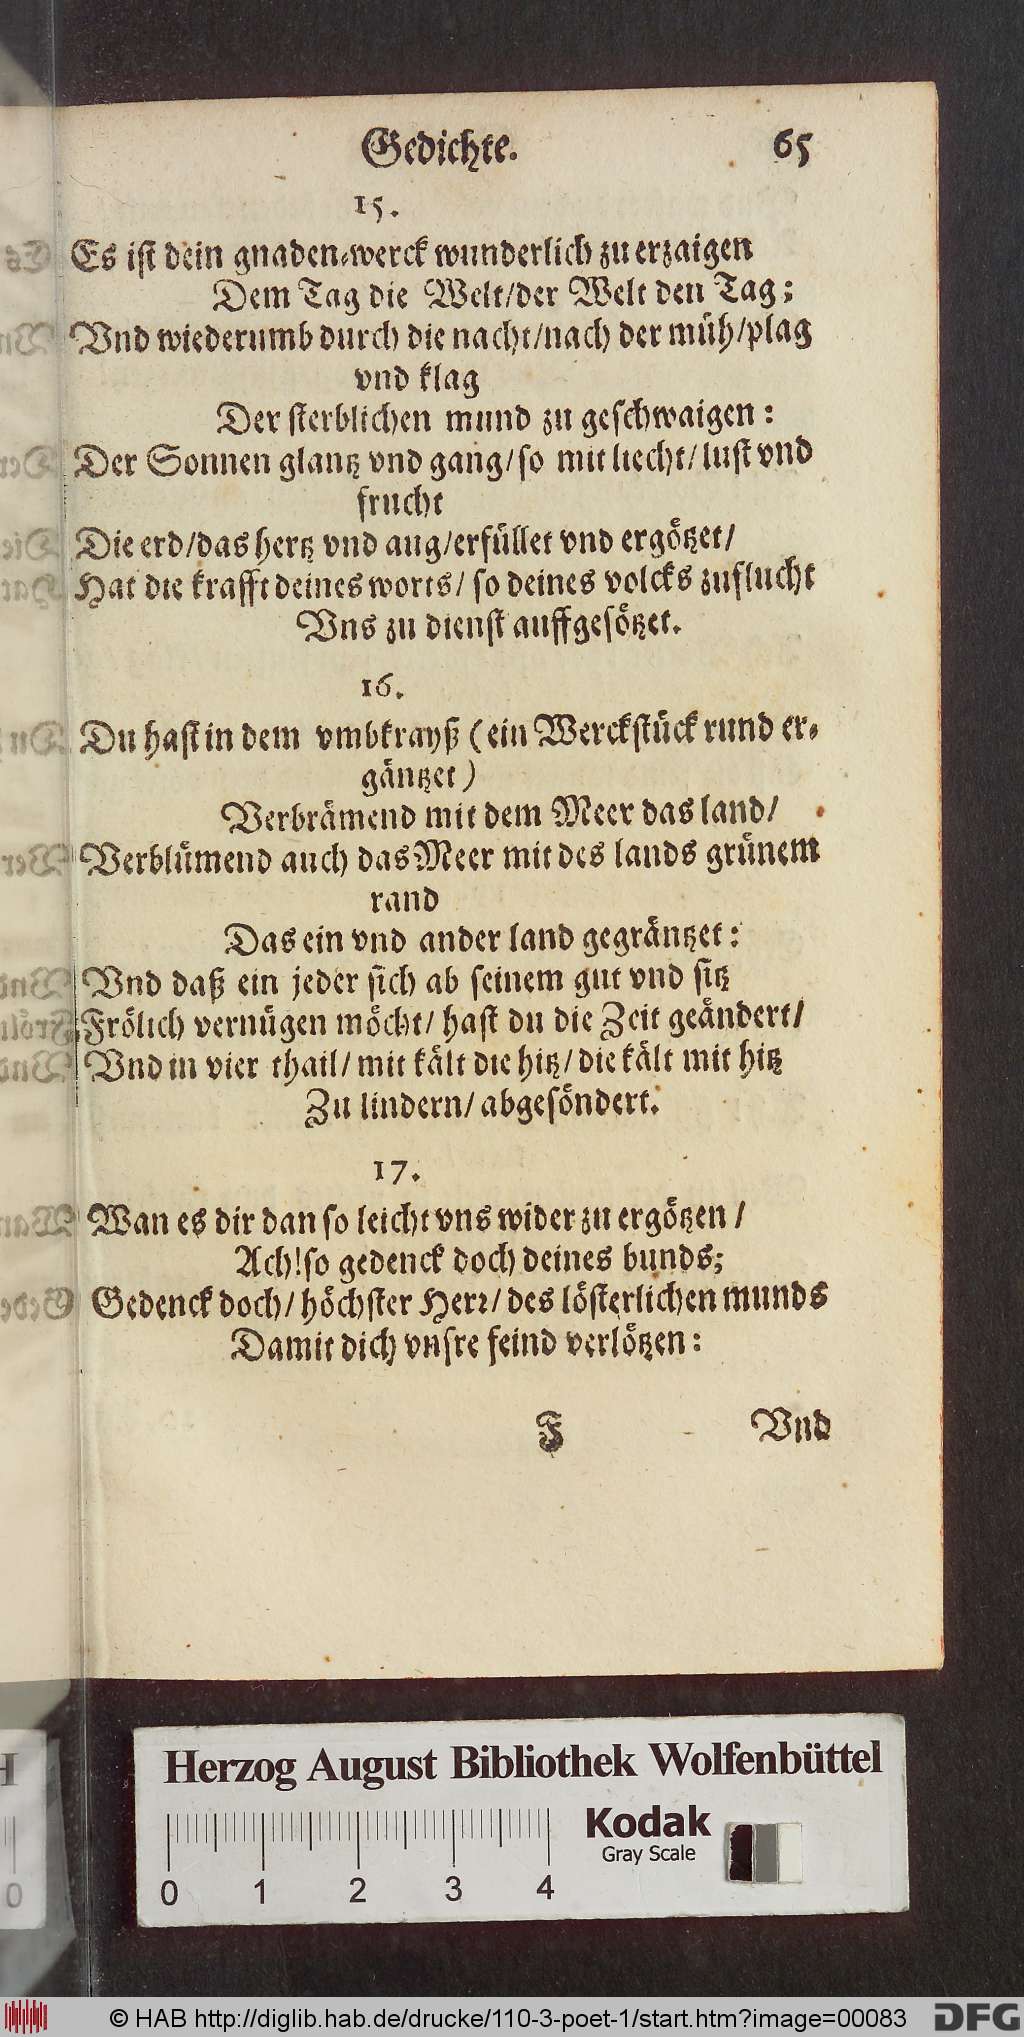 Gedichte. 65
15.
Es ist dein gnaden-werck wunderlich zu erzaigen
Dem Tag die Welt/der Welt den Tag;
Vnd wiederumb durch die nacht/nach der müh/plag
vnd klag
Der sterblichen mund zu geschwaigen:
Der Sonnen glantz vnd gang/so mit liecht/lust vnd
frucht
Die erd/das hertz vnd aug/erfüllet vnd ergötzet/
Hat die krafft deines worts/ so deines volcks zuflucht
Vns zu dienst auffgesötzet.
16.
Du hast in dem vmbkrayß (ein Werckstück rund er-
gäntzet)
Verbrämend mit dem Meer das land/
Verblümend auch das Meer mit des lands grünem
rand
Das ein vnd ander land gegräntzet:
Vnd daß ein jeder sich ab seinem gut vnd sitz
Frölich vernügen möcht/ hast du die Zeit geändert/
Vnd in vier thail/ mit kält die hitz/ die kält mit hitz
Zu lindern/ abgesöndert.
17.
Wan es dir dan so leicht vns wider zu ergötzen/
Ach!so gedenck doch deines bunds;
Gedenck doch/ höchster Herr/ des lösterlichen munds
Damit dich vnsre feind verlötzen:
F Vnd
Herzog August Bibliothek Wolfenbüttel
Kodak
Gray Scale
0 1 2 3 4
© HAB http://diglib.hab.de/drucke/110-3-poet-1/start.htm?image=00083 DFG